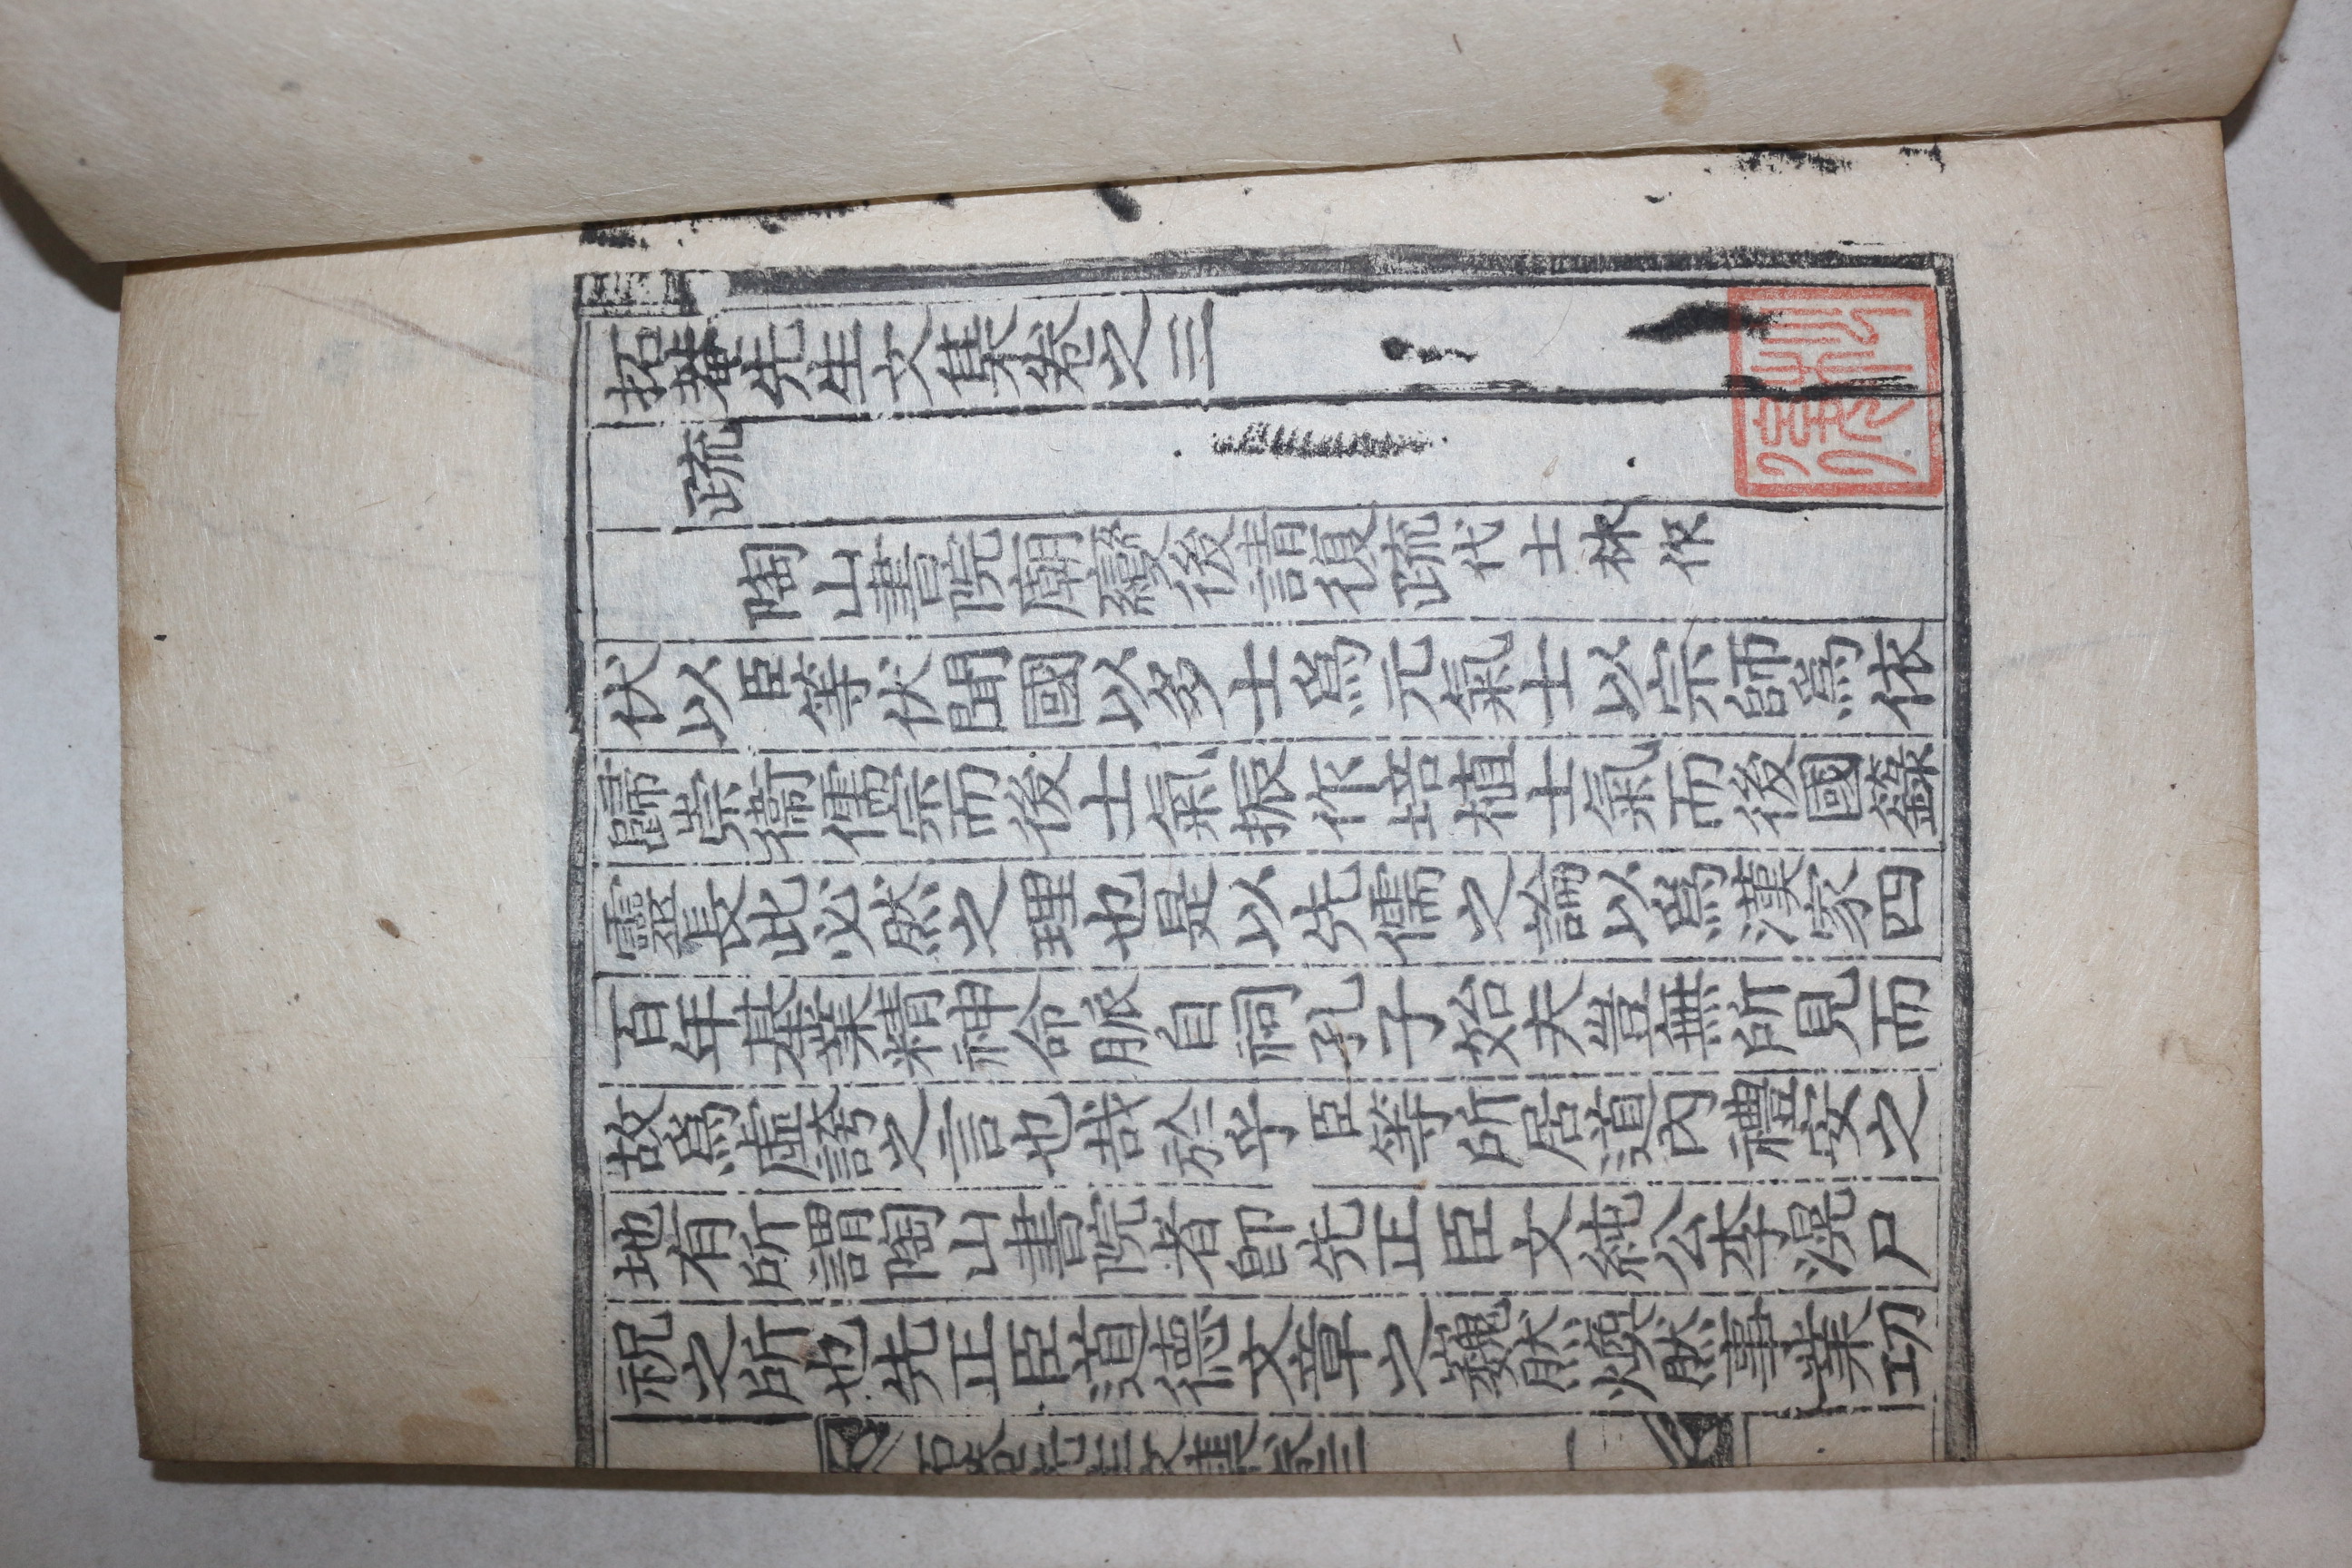 拓菴先生文集卷之三
疏
陶山書院廟變後請復疏代士林作
伏以臣等伏聞國以多士爲元氣士以宗師爲依
歸崇衛儒宗而後士氣振作培植士氣而後國籙
靈長此必然之理也是以先儒之論以爲漢家四
百年基業精神命脈自祠孔子始夫豈無所見而
故爲虛誇之言也哉於乎臣等所居道內禮安之
地有所謂陶山書院者卽先正臣文純公李滉尸
祝之所也先正臣道德文章之巍然煥然事業功
拓菴先生文集卷三 一